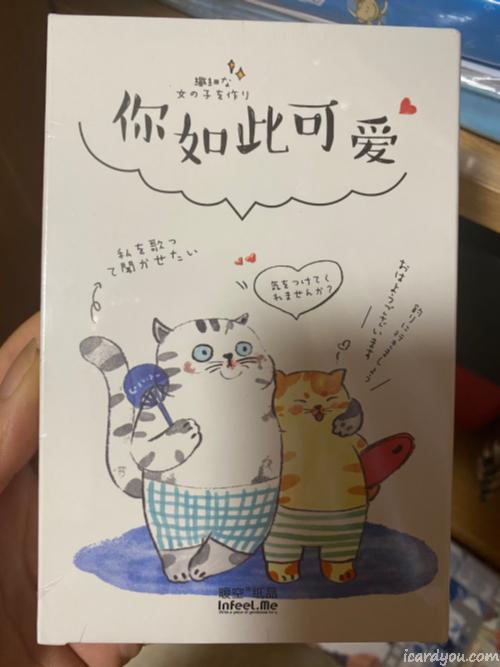 繊細な
女の子を作り
你如此可爱
私を歌っ
て聞かせたい
気をつけてく
れませんか?
おはようございます
釣りに行きましょう
暖空®纸品
Infeel.Me
icardyou.com